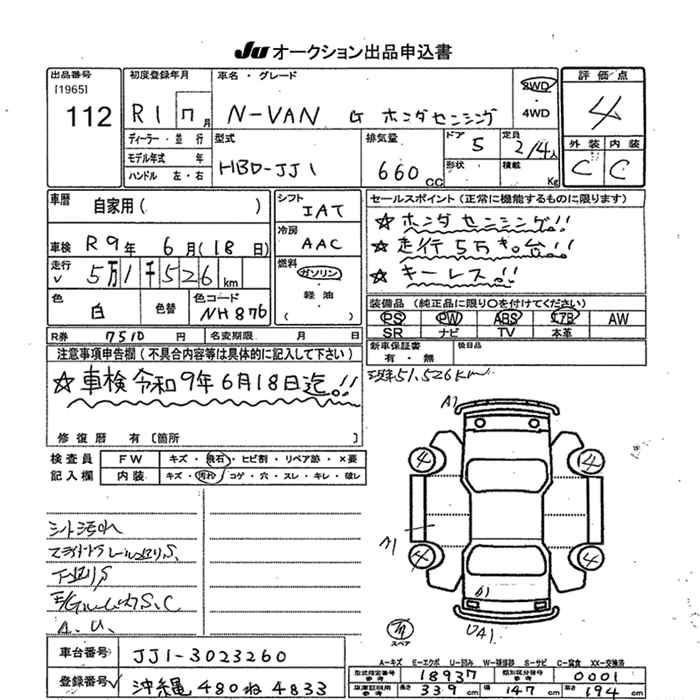 JU オークション出品申込書
出品番号 初度登録年月 車名・グレード 2WD ・ 4WD 評価点
[1965] 112 R1 7月 N-VAN G ホンダセンシング 4
ディーラー・並行 型式 排気量 ドア 定員 外装 内装
モデル年式 年 HBD-JJ1 660cc 5 2/4人 C C
ハンドル 左・右 形状 積載 Kg
車歴 自家用( ) シフト IAT セールスポイント(正常に機能するものに限ります)
☆ホンダセンシング!!
車検 R9年 6月(18日) 冷房 AAC ☆走行5万キロ台!!
走行 5万1千526km 燃料 ガソリン ・ 軽油 ( ) ☆キーレス!!
色 白 色替 色コード NH876 装備品 (純正品に限り○を付けてください)
PS PW ABS エアB AW
SR ナビ TV 本革
R券 7510 円 名変期限 月 日 新車保証書 有・無 後日品
注意事項申告欄(不具合内容等は具体的に記入して下さい)
☆車検令和9年6月18日迄!!
51,526km
修復歴 有 [箇所 ]
検査員 FW キズ・飛石・ヒビ割・リペア跡・X要
記入欄 内装 キズ・汚れ・コゲ・穴・スレ・キレ・破レ
シート汚れ
A1
4 4
A1
4 4
B1
UA1
スペア
A-キズ E-エクボ U-凹み W-補修跡 S-サビ C-腐食 XX-交換済
車台番号 JJ1-3023260
型式指定番号 参考 18937 類別区分番号 参考 0001
登録番号 沖縄 480 ね 4833
車庫証明用 参考 長さ 339cm 幅 147cm 高さ 194cm